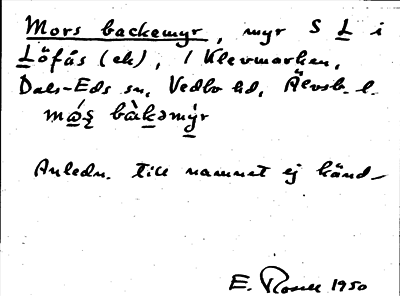 Mors backemyr, myr S L i
Löfås (ek), i Klevmarken,
Dals-Eds sn, Vedbo hd, Älvsb. l.
bàkəmýr
Anledn. till namnet ej känd
E. Rosell 1950